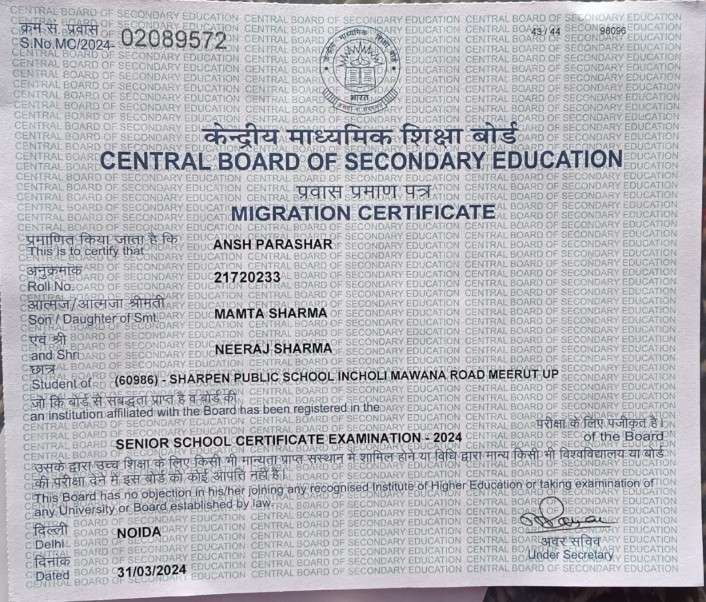 क्रम सं. प्रवास
S.No.MC/2024- 02089572
43 / 44 98096
भारत
केन्द्रीय माध्यमिक शिक्षा बोर्ड
CENTRAL BOARD OF SECONDARY EDUCATION
प्रवास प्रमाण पत्र
MIGRATION CERTIFICATE
प्रमाणित किया जाता है कि
This is to certify that ANSH PARASHAR
अनुक्रमांक
Roll No. 21720233
आत्मज/आत्मजा श्रीमती
Son / Daughter of Smt. MAMTA SHARMA
एवं श्री
and Shri NEERAJ SHARMA
छात्र
Student of (60986) - SHARPEN PUBLIC SCHOOL INCHOLI MAWANA ROAD MEERUT UP
जो कि बोर्ड से संबद्धता प्राप्त है व बोर्ड की
an institution affiliated with the Board has been registered in the
SENIOR SCHOOL CERTIFICATE EXAMINATION - 2024
परीक्षा के लिए पंजीकृत है।
of the Board
उसके द्वारा उच्च शिक्षा के लिए किसी भी मान्यता प्राप्त संस्थान में शामिल होने या विधि द्वारा मान्य किसी भी विश्वविद्यालय या बोर्ड
की परीक्षा देने में इस बोर्ड को कोई आपत्ति नहीं है।
This Board has no objection in his/her joining any recognised Institute of Higher Education or taking examination of
any University or Board established by law.
दिल्ली
Delhi NOIDA
अवर सचिव
Under Secretary
दिनांक
Dated 31/03/2024